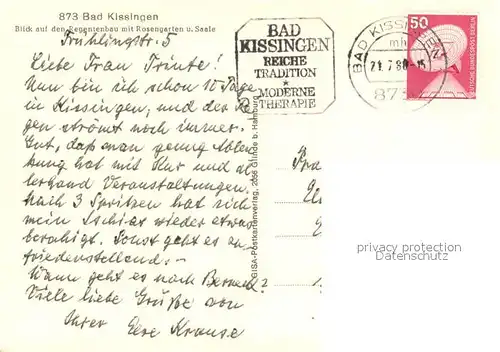 873 Bad Kissingen
Blick auf den Regentenbau mit Rosengarten u. Saale
Frühlingstr. 5
Liebe Frau Trinte!
Nun bin ich schon 10 Tage
in Kissingen, und der Re-
gen strömt noch immer.
Gut, daß man genug Ablen-
kung hat mit Kur und al-
lerhand Veranstaltungen.
Nach 3 Spritzen hat sich
mein Ischias wieder etwas
beruhigt. Sonst geht es zu-
friedenstellend. –
Wann geht es nach Berneck?
Viele liebe Grüße von
Ihrer Eere Krause
GISA-Postkartenverlag, 2056 Glinde b. Hamburg
BAD
KISSINGEN
REICHE
TRADITION
★
MODERNE
THERAPIE
BAD KISSINGEN
mh
21.7.80-15
873
50
DEUTSCHE BUNDESPOST BERLIN
Fra
privacy protection
Datenschutz